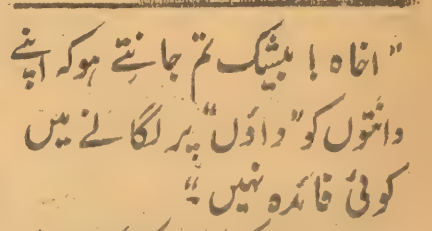 "اخاہ ! بیشک تم جانتے ہو کہ اپنے
دانتوں کو "داؤں" پر لگانے میں
کوئی فائدہ نہیں"